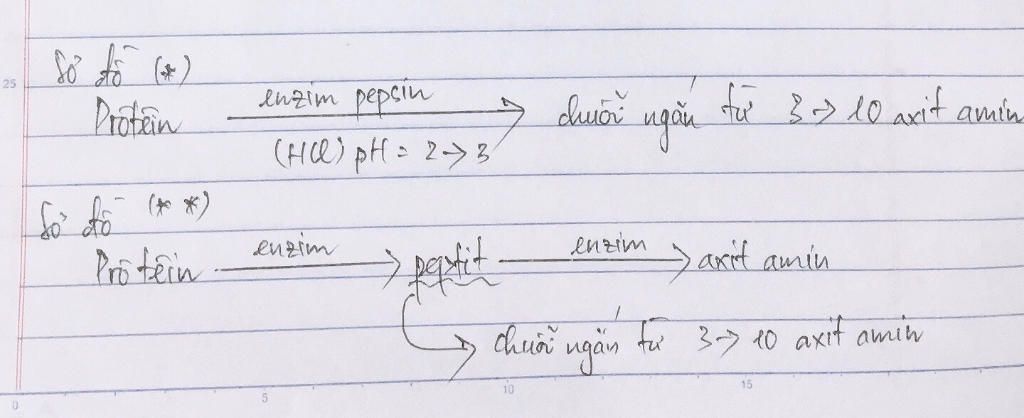 25
Sơ đồ (*)
enzim pepsin
Prôtêin → chuỗi ngắn từ 3 → 10 axit amin
(HCl) pH = 2 → 3
Sơ đồ (* *)
enzim enzim
Prôtêin → peptit → axit amin
→ chuỗi ngắn từ 3 → 10 axit amin
0 5 10 15